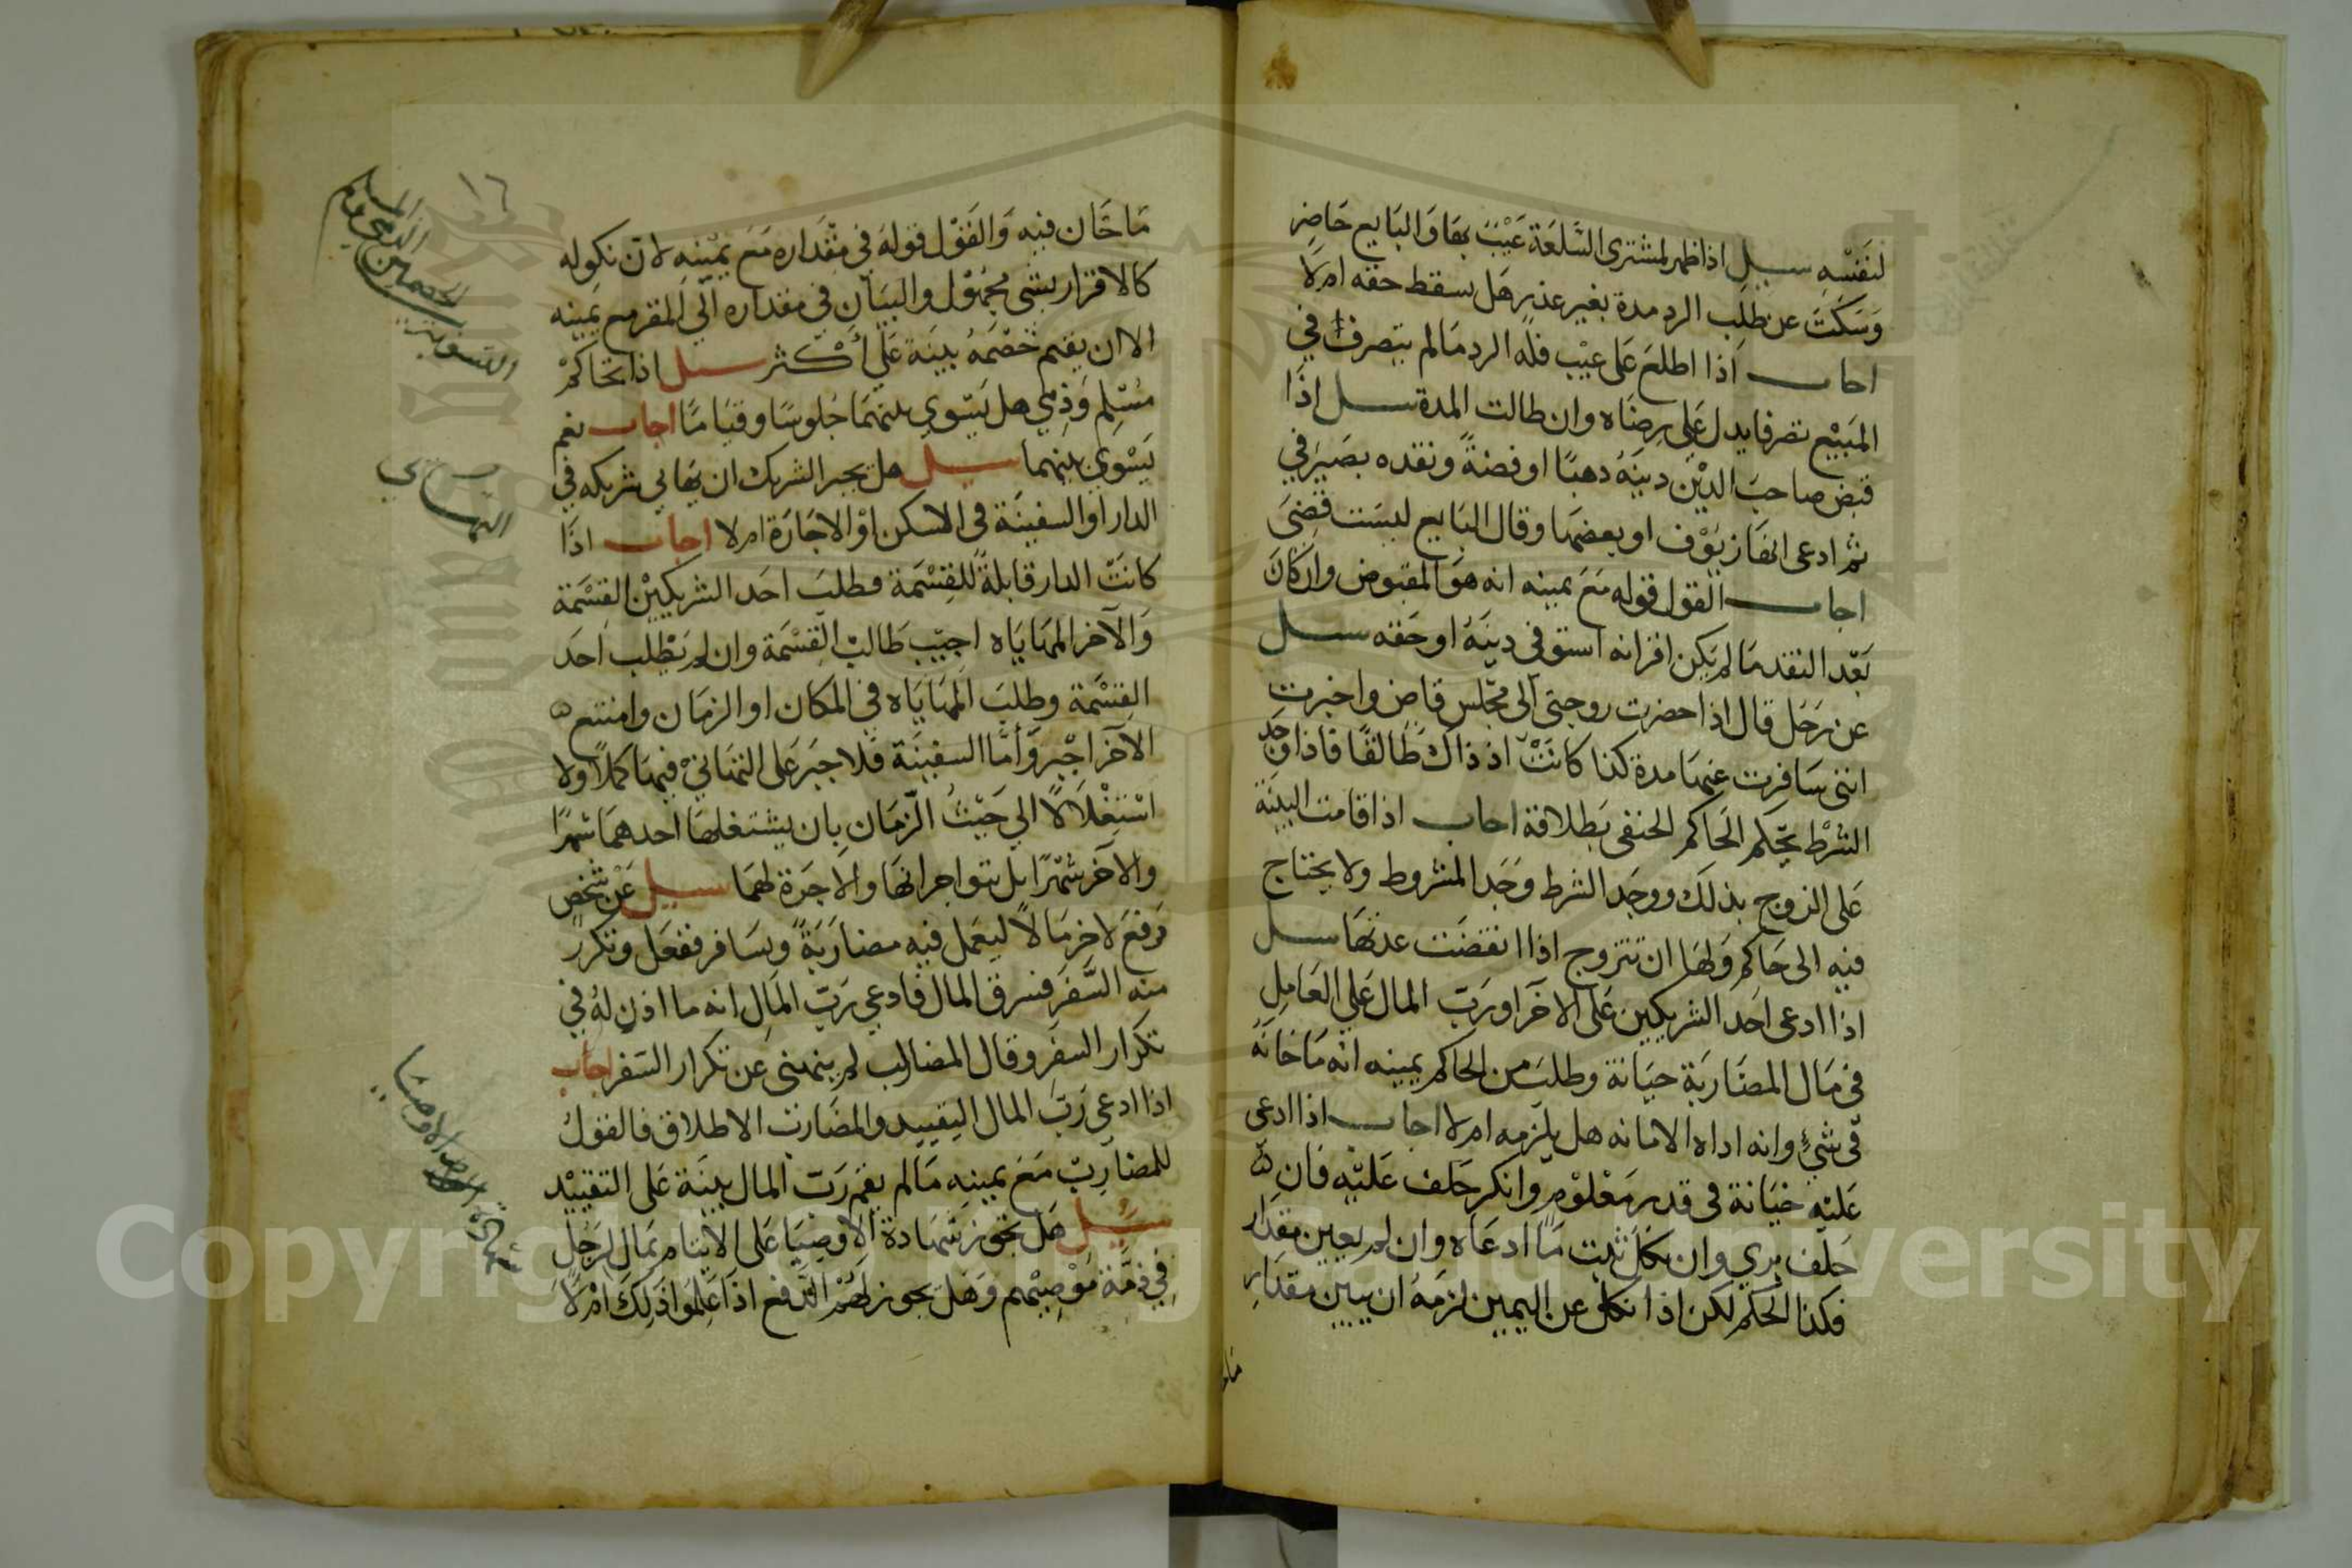 لنَفَسْهِ سيل اذا ظهر لمشترى السَّلعَة عَيْبَ بهَا وَالبَايع حَاضِر
وَسَكَتَ عن طلب الرد مدة بغير عذر هَل يسقط حقه امرلا
احاب اذا اطلعَ عَلى عَيْب فله الرد مَالم يتصرف في
المَبيْع تصرفا يدل عَلى رِضَاه وان طالت المدة سيل اذَا
قبض صاحبَ الديْن دينَهُ دهبًا او فضةً ونقده بصَيرَفي
ثم ادعى انهَا زيوْف او بعضها وقال البَايع ليسَت فضتى
اجاب القول قوله مَعَ يمينه انه هوَ المقبوض وان كانَ
بَعْد النقد مَا لم يَكن اقر انه استوفى دينَهُ او حَقه سيل
عن رَجَل قال اذا حضرت زوجتى الى مجلس قاض واخبرت
اننى سَافرت عنهَا مدة كذا كانَتْ اذ ذاك طَالقًا فاذا وُجد
الشرْط يحْكم الحَاكم الحنفى بَطلاقه احاب اذا قامت البينَة
عَلى الزوج بذلكَ ووجَد الشرط وَجَد المشروط ولا يحتاج
فيه الى حَاكم وَلهَا ان تتزوج اذا انقضَت عدتهَا سيل
اذا ادعى احَد الشريكين عَلى الاخَر اورَبّ المال عَلي العَامِل
فى مَال المضَاربَة خيَانة وطلبَ من الحاكم يمينه انه مَا خانه
فى شيءٍ وانه اداه الامانه هل يلزمه امرلا اجاب اذا ادعى
عَليْه خيَانة فى قدر مَعْلوْم وانكر حَلف عَليْه فان
حَلف بري وان نكَل ثبت مَا ادعَاه وان لم يعين مقدَار
فكذا الحكم لكن اذا نكل عن اليمين لزمَهُ ان يبين مقدَار
مَا خَان فيه وَالقَوْل قوله في مقدَاره مَعَ يمْينِه لان نكوله
كالاقرار بشى مجهوْل والبيَان في مقداره الي المقر مع يَمينِه
الا ان يقيم خَصْمَهُ بينَة عَلي أكْثر سيل اذا تحَاكمْ
مُسْلِم وَذِمي هل يَسْوي بينهمَا جُلوسًا وقيَامًا اجاب نعَم
يَسْوي بينهما سيل هل يجبر الشريك ان يهَايي شريكه في
الدار او السفينَة فى السكن اوْ الاجَارَة امرلا اجاب اذَا
كانَتْ الدار قابلةً للقِسْمَة وطلبَ احَد الشريكيْن القِسْمَة
وَالآخر المهَايَاه اجيْبَ طَالبْ القِسْمَة وان لم يَطْلب احَد
القِسْمَة وطلبَ المهَايَاه في المكان او الزمَان وامتنع
الآخر اجْبر وَأمَّا السفينَة فَلا جبَر عَلى التهَاني فيهَا كمَلاً ولا
اسْتِغْلَالًا الي حَيْثُ الزمَان بان يشتغلهَا احدهمَا شهرًا
والآخر شهْرًا بل تواجرانهَا والاجَرة لهمَا سيل عَنْ شخْصٍ
دَفعَ لاخر مَالاً ليعَمل فيه مضارَبَةً ويسَافر ففعَل وتكرر
منه السَّفَر فسرق المال فادعي رَبّ المَال انه ما اذن لهُ في
تكرار السَفر وقال المضارب لم ينهنى عن تكرار السَفر اجاب
اذا ادعي رَبّ المال التقييد والمضَارب الاطلاق فالقولُ
للمضارِبْ مَعَ يمينه مَالم يقم رَبّ المال بينَة عَلى التقييْد
سُيل هَل تجوز شهَادة الاوصيَا عَلى الايتام بمَال لِرَجُلٍ
في ذمَّة مُوْصِيْهم وَهَل يجوز لهُمْ الدَّفع اذَا عَلِمُوا ذلكَ امْرلاَ
١٦
التسوية
بين الخصمين
شهادة الاوصيا
Copyright © King Saud University